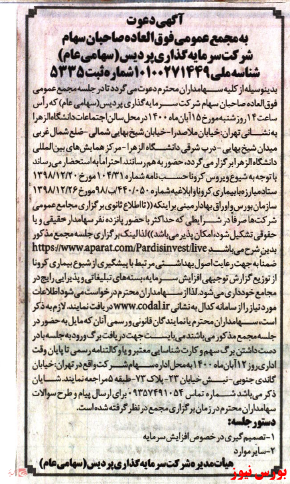 آگهی دعوت
به مجمع عمومی فوق العاده صاحبان سهام
شرکت سرمایه گذاری پردیس (سهامی عام)
شناسه ملی ۱۰۱۰۰۲۷۱۴۴۹ شماره ثبت ۵۳۳۵
بدینوسیله از کلیه سهامداران محترم دعوت می گردد تا در جلسه مجمع عمومی
فوق العاده صاحبان سهام شرکت سرمایه گذاری پردیس (سهامی عام) که رأس
ساعت ۱۴ روز شنبه مورخ ۱۵ آبان ماه ۱۴۰۰ در محل سالن اجتماعات دانشگاه الزهرا
به نشانی تهران: خیابان ملاصدرا-خیابان شیخ بهایی شمالی- ضلع شمال غربی
میدان شیخ بهایی - درب شرقی دانشگاه الزهرا- مرکز همایش های بین المللی
دانشگاه الزهرا برگزار می گردد، حضور به هم رسانند. احتراماً به استحضار می رساند
با توجه به شیوع ویروس کرونا حسب نامه شماره ۱۰۴/۳۱ مورخ ۱۳۹۸/۱۲/۲۰
ستاد مبارزه با بیماری کرونا و ابلاغیه شماره ۴۴۰/۰۵۰/ب۹۸ مورخ ۱۳۹۸/۱۲/۲۶
سازمان بورس و اوراق بهادار مبنی بر اینکه ((تا اطلاع ثانوی برگزاری مجامع عمومی
شرکت ها صرفاً در شرایطی که حداکثر با حضور پانزده نفر سهامدار حقیقی و یا
حقوقی تشکیل شود، امکان پذیر می باشد)) لذا لینک برگزاری جلسه مجمع مذکور
بدین شرح می باشد https://www.aparat.com/Pardisinvest/live
ضمنا به جهت رعایت اصول بهداشتی مرتبط با پیشگیری از شیوع بیماری کرونا
از توزیع گزارش توجیهی افزایش سرمایه، بسته های تبلیغاتی و پذیرایی رایج در
مجامع خودداری می شود. لذا از سهامداران محترم درخواست می شود اطلاعات
مورد نیاز را از سامانه کدال به نشانی www.codal.ir دریافت نمایند. لازم به ذکر
است، سهامداران محترم یا نمایندگان قانونی و رسمی آنان که مایل به حضور در
جلسه مجمع مذکور می باشند می بایست جهت دریافت برگ ورود به جلسه با در
دست داشتن برگ سهم و کارت شناسایی معتبر و یا وکالتنامه رسمی تا پایان وقت
اداری روز ۱۲ آبان ماه ۱۴۰۰ به محل اداره سهام شرکت واقع در تهران: خیابان
گاندی جنوبی- نبش خیابان ۲۳- پلاک ۷۳- طبقه ۵ مراجعه نمایند. شایان
ذکر می باشد شماره ۰۹۳۵۷۴۹۱۰۵۴ برای ارسال پیام و طرح سوالات
سهامداران محترم در زمان برگزاری مجمع در نظر گرفته شده است.
دستور جلسه:
۱-تصمیم گیری در خصوص افزایش سرمایه
۲-سایر موارد
هیأت مدیره شرکت سرمایه گذاری پردیس (سهامی عام)
بورس نیوز